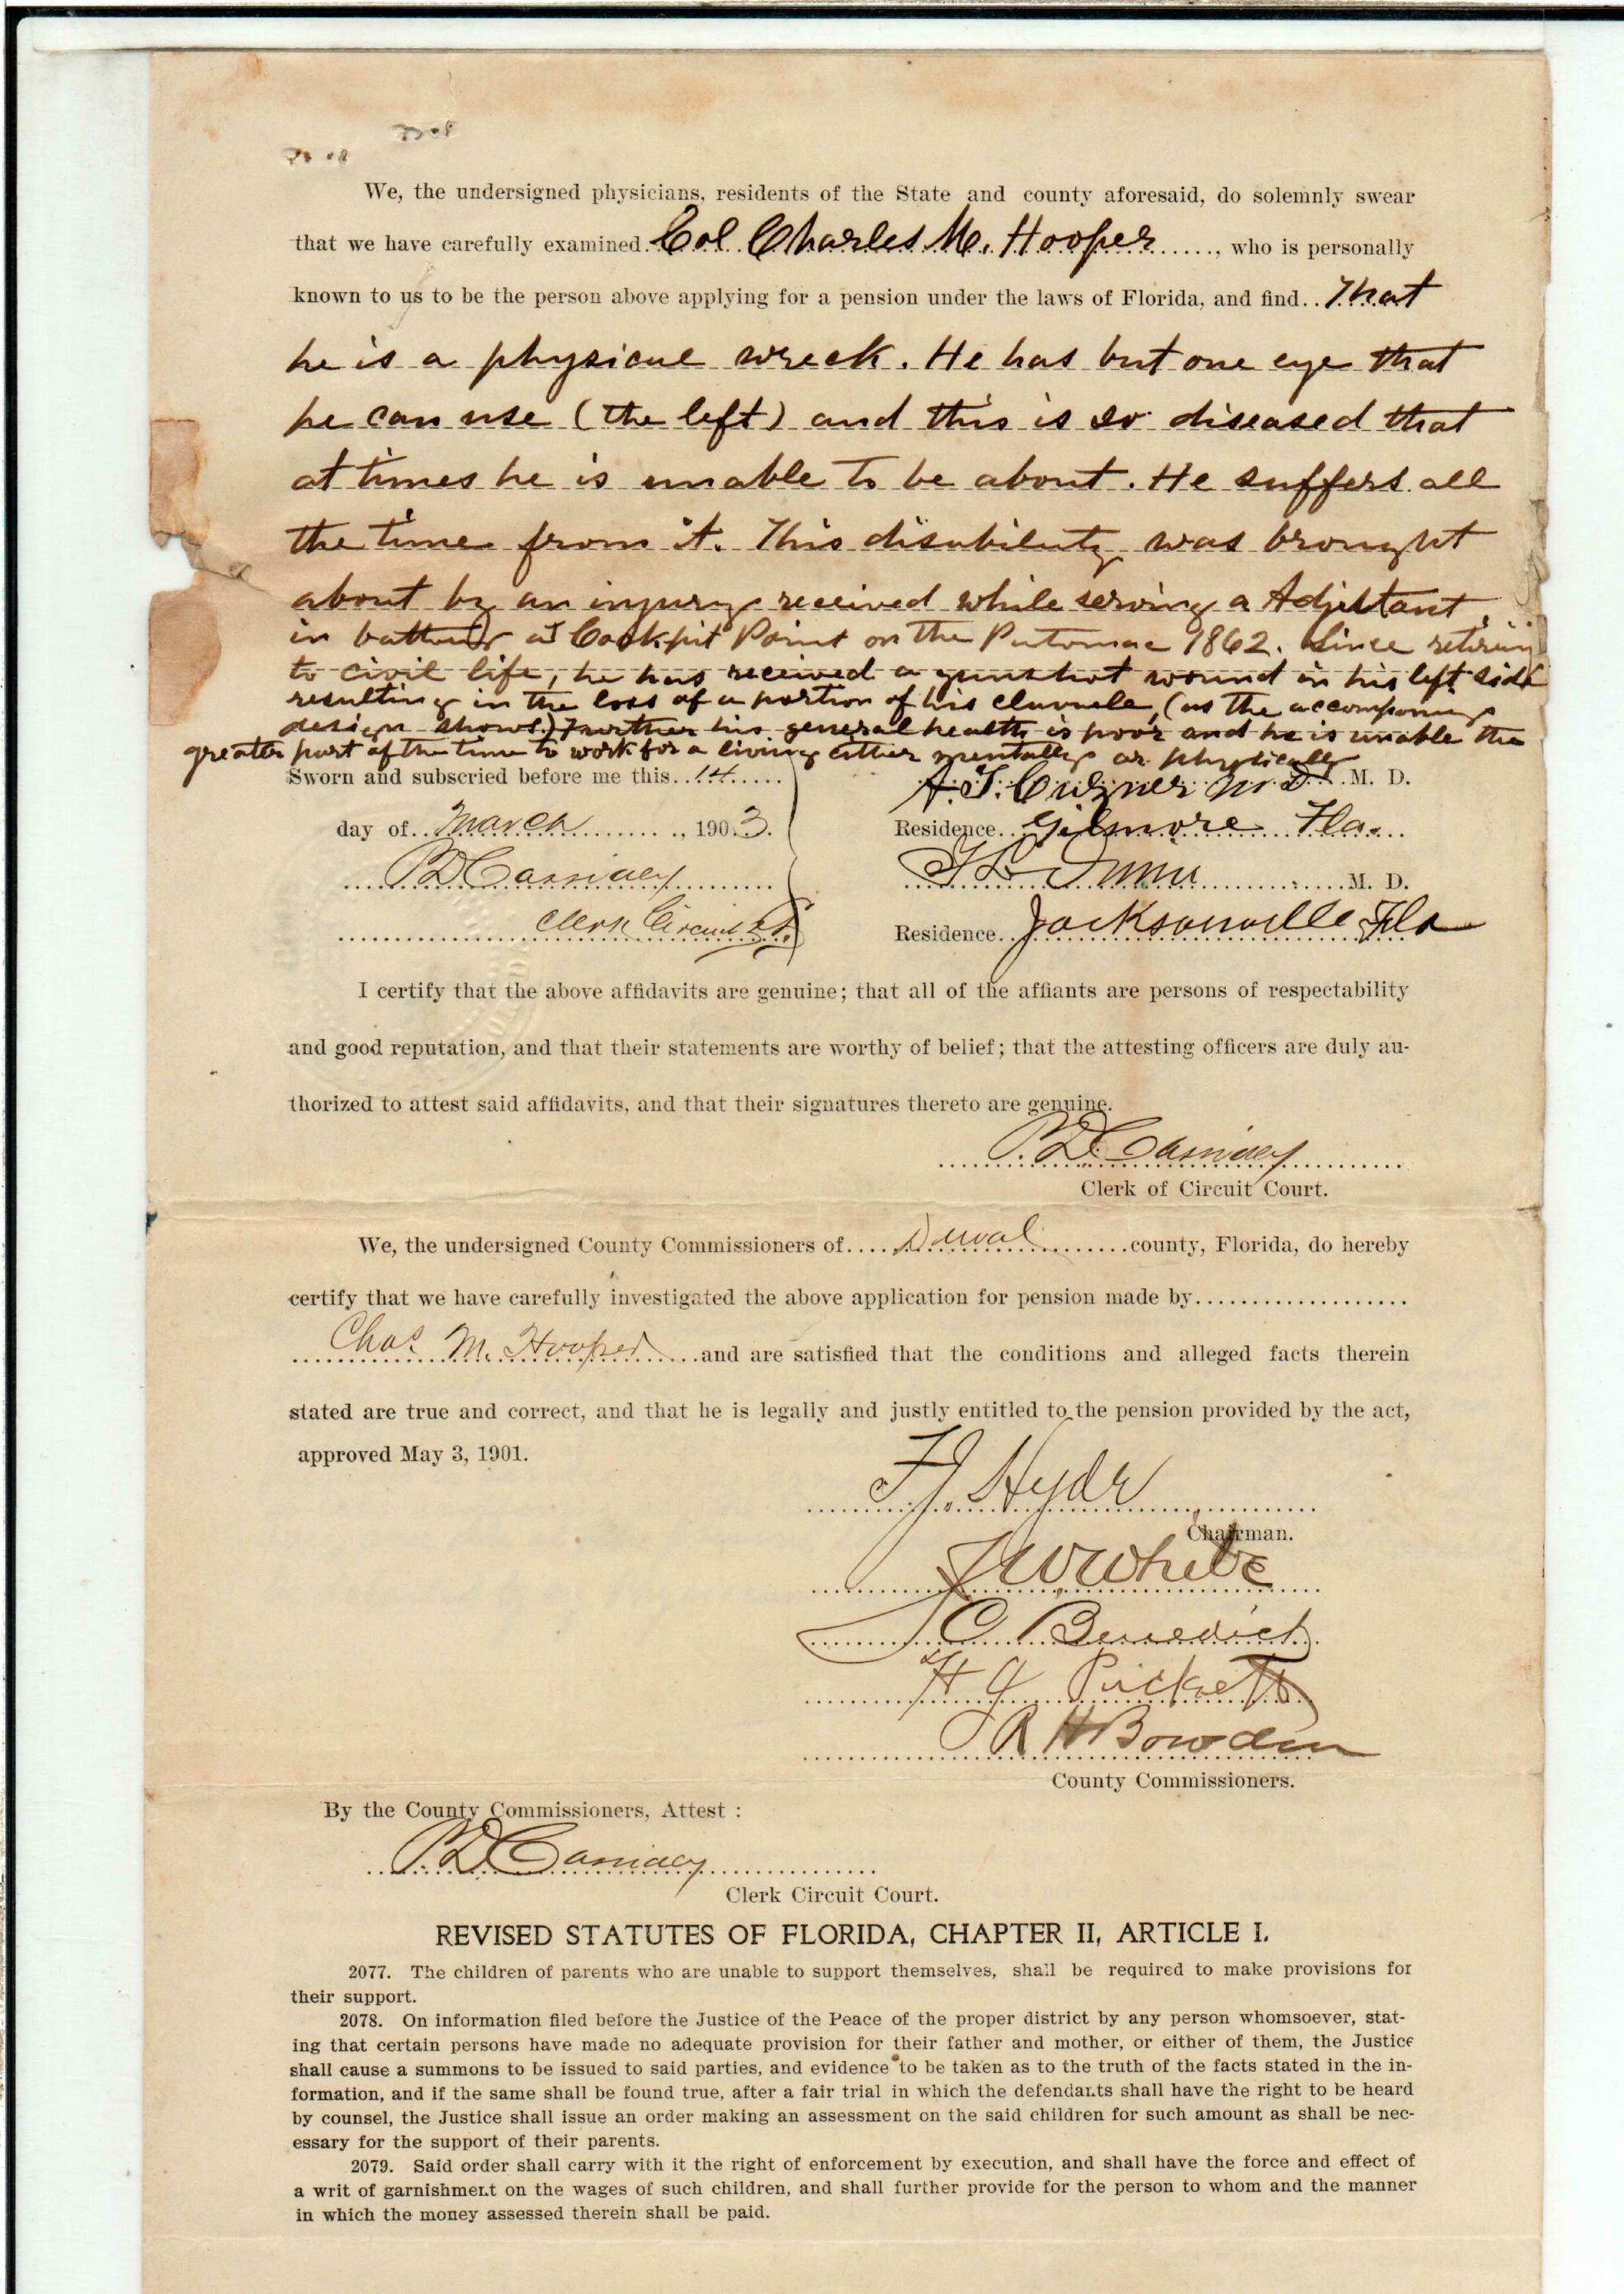 We, the undersigned physicians, residents of the State and county aforesaid, do solemnly swear
that we have carefully examined. Col Charles M. Hooper ......, who is personally
known to us to be the person above applying for a pension under the laws of Florida, and find.. That
he is a physical wreck. He has but one eye that
he can use (the left) and this is so diseased that
at times he is unable to be about. He suffers all
the time from it. This disability was brought
about by an injury received while serving a Adjutant
in battery at Cockpit Point on the Putomac 1862. Since retiring
to civil life, he has received a gunshot wound in his left side
resulting in the loss of a portion of his clavicle, (as the accompanying
design shows.) Further his general health is poor and he is unable the
greater part of the time to work for a living either mentally or physically
Sworn and subscried before me this.. 14 .....
A. J. Cuzner M. D. M. D.
day of.. March ........, 1903.
Residence.. Gilmore Fla...
P D Cassidey
M. D.
Clerk Circuit Ct.
Residence.. Jacksonville Fla
I certify that the above affidavits are genuine; that all of the affiants are persons of respectability
and good reputation, and that their statements are worthy of belief; that the attesting officers are duly au-
thorized to attest said affidavits, and that their signatures thereto are genuine.
P. D. Cassidey
Clerk of Circuit Court.
We, the undersigned County Commissioners of.... Duval ........county, Florida, do hereby
certify that we have carefully investigated the above application for pension made by...................
Chas. M. Hooper ....and are satisfied that the conditions and alleged facts therein
stated are true and correct, and that he is legally and justly entitled to the pension provided by the act,
approved May 3, 1901.
F J. Hyde
Chairman.
J W White
J C Benedict
H J Pickett
R H Bowden
County Commissioners.
By the County Commissioners, Attest :
P. D Cassidey
Clerk Circuit Court.
REVISED STATUTES OF FLORIDA, CHAPTER II, ARTICLE I.
2077. The children of parents who are unable to support themselves, shall be required to make provisions for
their support.
2078. On information filed before the Justice of the Peace of the proper district by any person whomsoever, stat-
ing that certain persons have made no adequate provision for their father and mother, or either of them, the Justice
shall cause a summons to be issued to said parties, and evidence to be taken as to the truth of the facts stated in the in-
formation, and if the same shall be found true, after a fair trial in which the defendants shall have the right to be heard
by counsel, the Justice shall issue an order making an assessment on the said children for such amount as shall be nec-
essary for the support of their parents.
2079. Said order shall carry with it the right of enforcement by execution, and shall have the force and effect of
a writ of garnishment on the wages of such children, and shall further provide for the person to whom and the manner
in which the money assessed therein shall be paid.